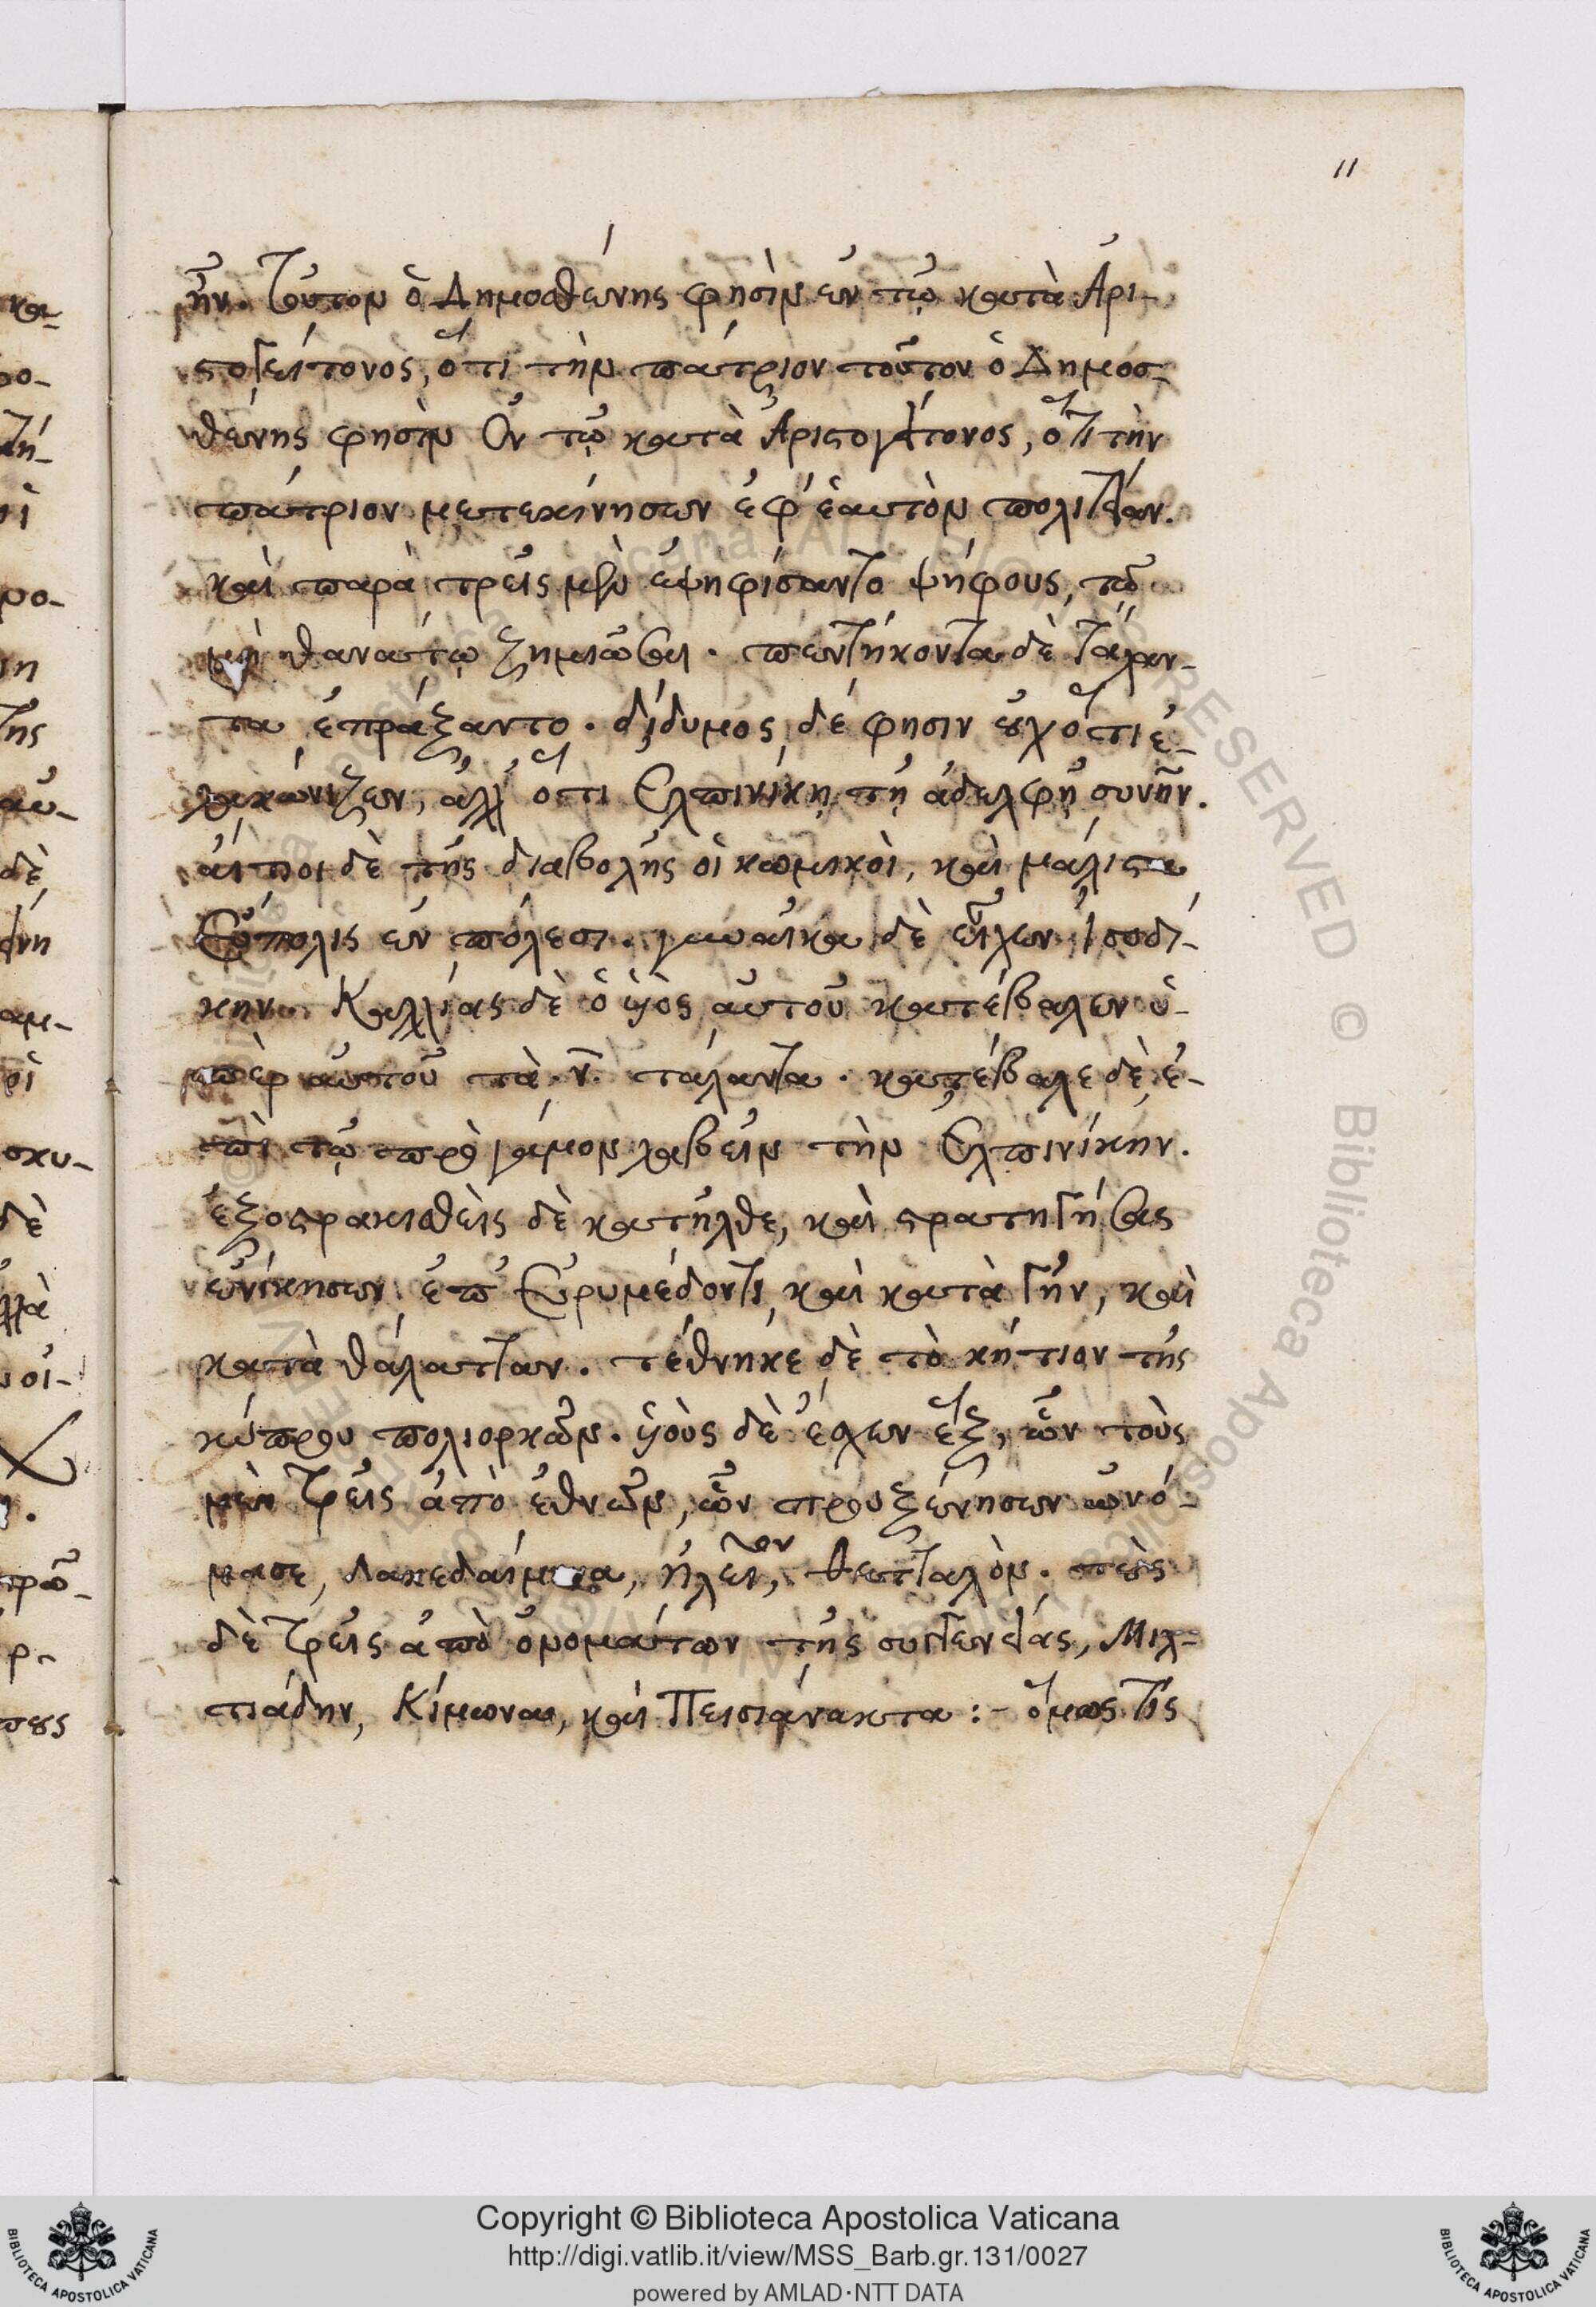 11
ἦν. τοῦτον ὁ Δημοσθένης φησὶν ἐν τῷ κατὰ Ἀρι-
στογείτονος, ὅτι τὴν πάτριον τοῦτον ὁ Δημοσ-
θένης φησὶν ἐν τῷ κατὰ Ἀριστογείτονος, ὅτι τὴν
πάτριον μετεκίνησεν ἐφ' ἑαυτὸν πολιτείαν.
καὶ παρὰ τρεῖς μὲν ἐψηφίσαντο ψήφους, τῷ
μὴ θανάτῳ ζημιῶσαι. πεντήκοντα δὲ τάλαν-
τα ἐπράξαντο. δίδυμος δέ φησιν οὐχ ὅτι ἐ-
λακώνιζεν, ἀλλ' ὅτι Ἐλπινίκῃ τῇ ἀδελφῇ συνῆν.
αἴτιοι δὲ τῆς διαβολῆς οἱ κωμικοὶ, καὶ μάλιστα
Εὔπολις ἐν πόλεσι. γυναῖκα δὲ εἶχεν Ἰσοδί-
κην. Καλλίας δὲ ὁ υἱὸς αὐτοῦ κατέβαλεν ὑ-
πὲρ αὐτοῦ τὰ .ν. τάλαντα. κατέβαλε δὲ ἐ-
πὶ τῷ πρὸ γάμον λαβεῖν τὴν Ἐλπινίκην.
ἐξοστρακισθεὶς δὲ κατῆλθε, καὶ στρατηγήσας
ἐνίκησεν ἐπ' Εὐρυμέδοντι, καὶ κατὰ γῆν, καὶ
κατὰ θάλατταν. τέθνηκε δὲ τὸ κήτιον τῆς
κύπρου πολιορκῶν. υἱοὺς δὲ ἔσχεν ἓξ, ὧν τοὺς
μὲν τρεῖς ἀπὸ ἐθνῶν, ὧν προυξένησεν ὠνό-
μασε, Λακεδαίμονα, ἠλεῖον, θετταλὸν. τοὺς
δὲ τρεῖς ἀπὸ ὀνομάτων τῆς συγγενείας, Μιλ-
τιάδην, Κίμωνα, καὶ Πεισιάνακτα :- ὅμως τίς
Copyright © Biblioteca Apostolica Vaticana
http://digi.vatlib.it/view/MSS_Barb.gr.131/0027
powered by AMLAD·NTT DATA